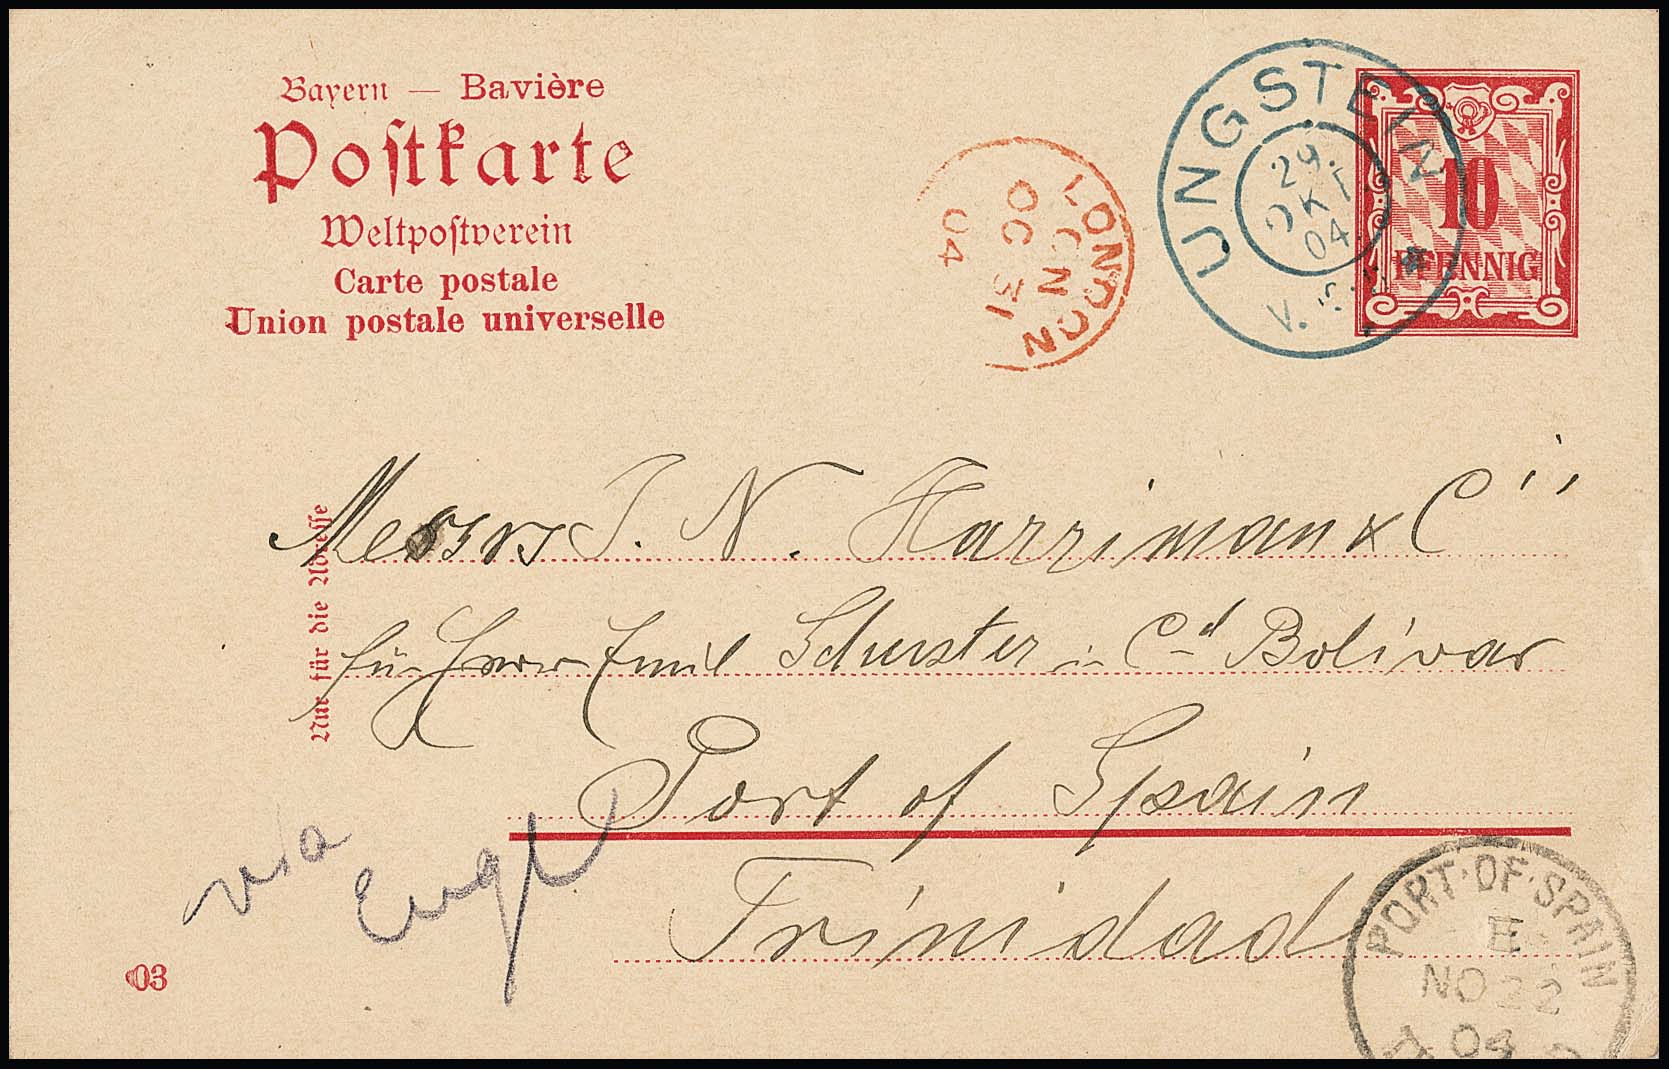 Bayern — Bavière
Postkarte
Weltpostverein
Carte postale
Union postale universelle
LONDON
OC 31
04
UNGSTEIN
29.
OKT
04
V.
10
PFENNIG
Nur für die Adresse
Messrs J. N. Harriman & C
für Herrn Emil Schuster in Cd Bolivar
Port of Spain
Trinidad
via
Engl
03
PORT·OF·SPAIN
E
NO 22
04